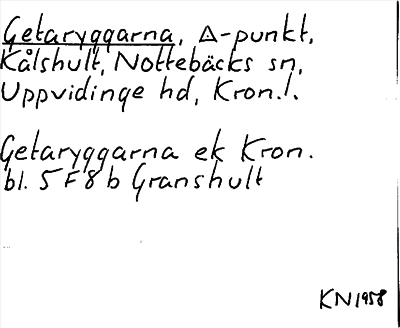 Getaryggarna, Δ-punkt,
Kålshult, Nottebäcks sn,
Uppvidinge hd, Kron.l.
Getaryggarna ek Kron.
bl. 5 F 8 b Granshult
KN 1958